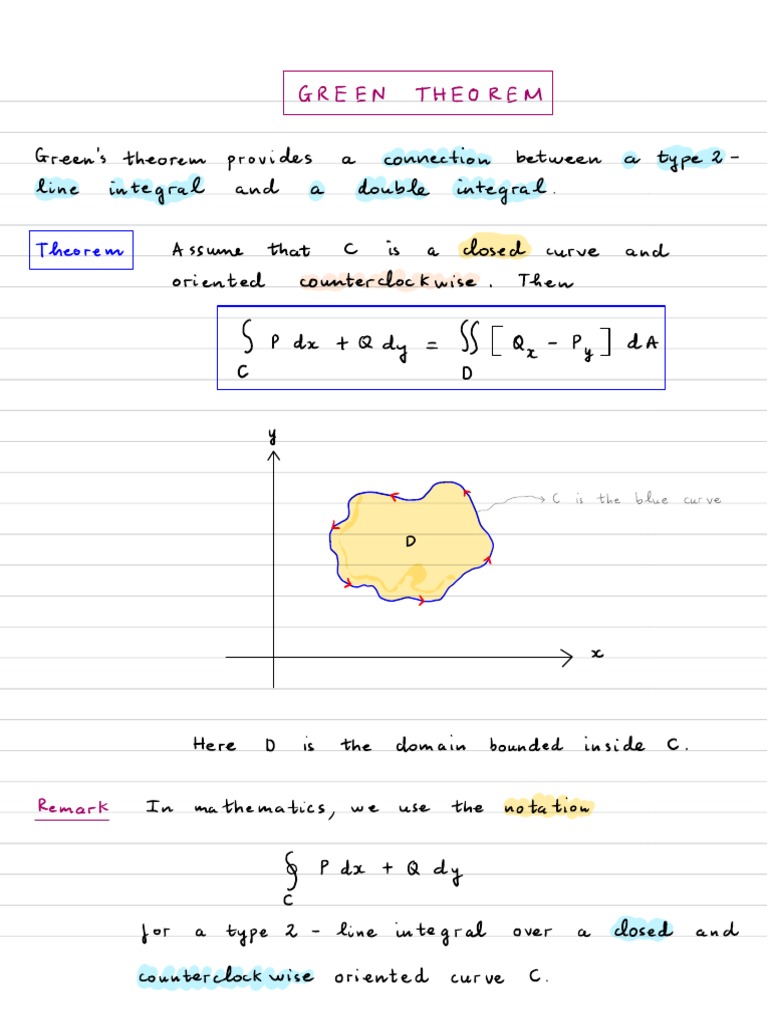 GREEN THEOREM
Green's theorem provides a connection between a type 2-
line integral and a double integral.
Theorem Assume that C is a closed curve and
oriented counterclockwise. Then
∫ P dx + Q dy = ∬ [Qₓ - P_y] dA
C D
y
C is the blue curve
D
x
Here D is the domain bounded inside C.
Remark In mathematics, we use the notation
∮ P dx + Q dy
C
for a type 2 - line integral over a closed and
counterclockwise oriented curve C.